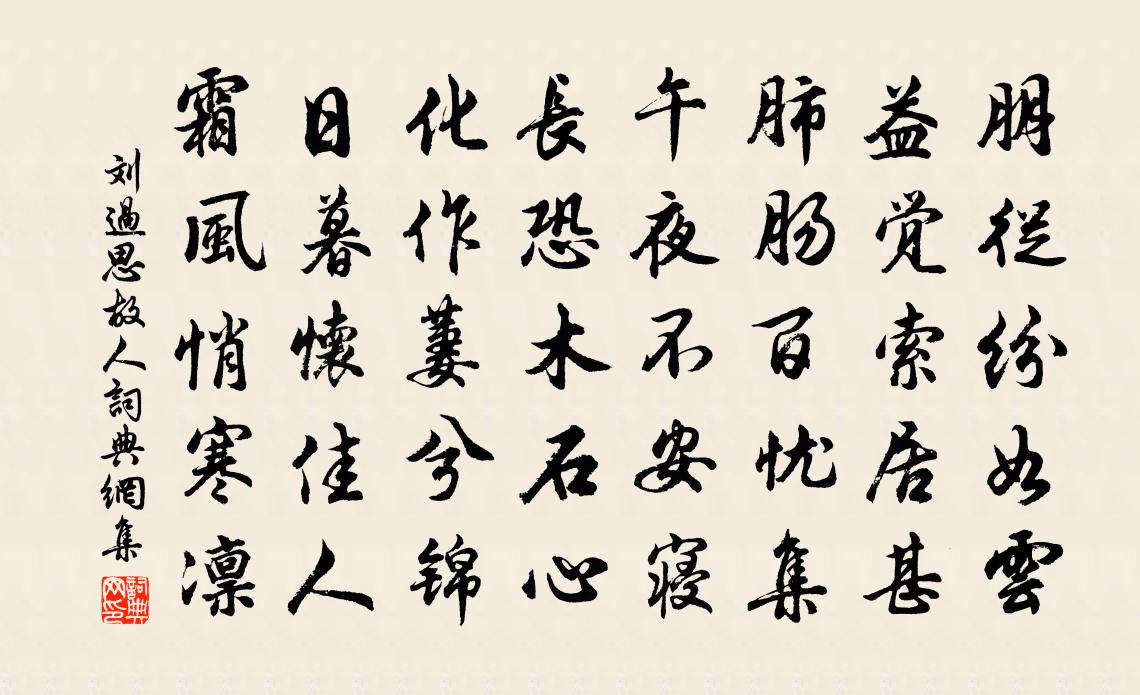 朋從纷如雲
益觉索居甚
肺肠百忧集
午夜不安寝
長恐木石心
化作萋兮锦
日暮懷佳人
霜風悄寒凛
刘過思故人詞典網集
詞典网印